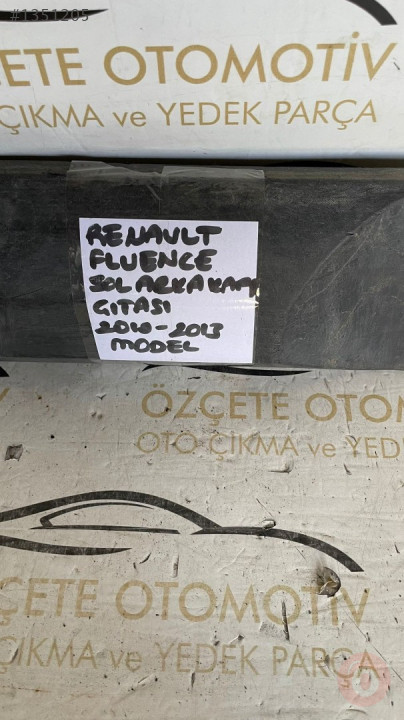 #1351205
ÖZÇETE OTOMOTİV
ÇIKMA ve YEDEK PARÇA
RENAULT
FLUENCE
SOL ARKA KAPI
GITASI
2010-2013
MODEL
ÖZÇETE OTOM
OTO ÇIKMA ve YEDE
ÇETE OTOMOTİV
ÇIKMA ve YEDEK PARÇA